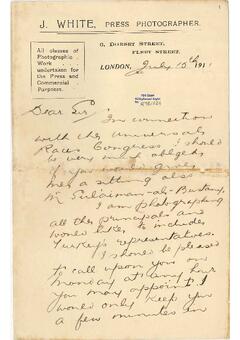 J. WHITE, PRESS PHOTOGRAPHER.
All classes of
Photographic
Work
undertaken for
the Press and
Commercial
Purposes.
6, DORSET STREET,
FLEET STREET.
LONDON, July 15th 1911
Dear Sir
In connection
with the Universal
Races Congress I should
be very much obliged
if you would give
me a sitting also
Mr Sulaiman-al-Bustany,
I am photographing
all the principals and
would like to include
Turkey's representatives.
I should be pleased
to call upon you on
Monday at any hour
you may appoint I
would only keep you
a few minutes in